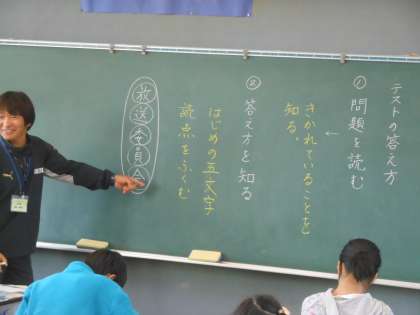 テストの答え方
① 問題を読む
きかれていることを
知る。
② 答え方を知る
はじめの五文字
読点をふくむ
放送委員会